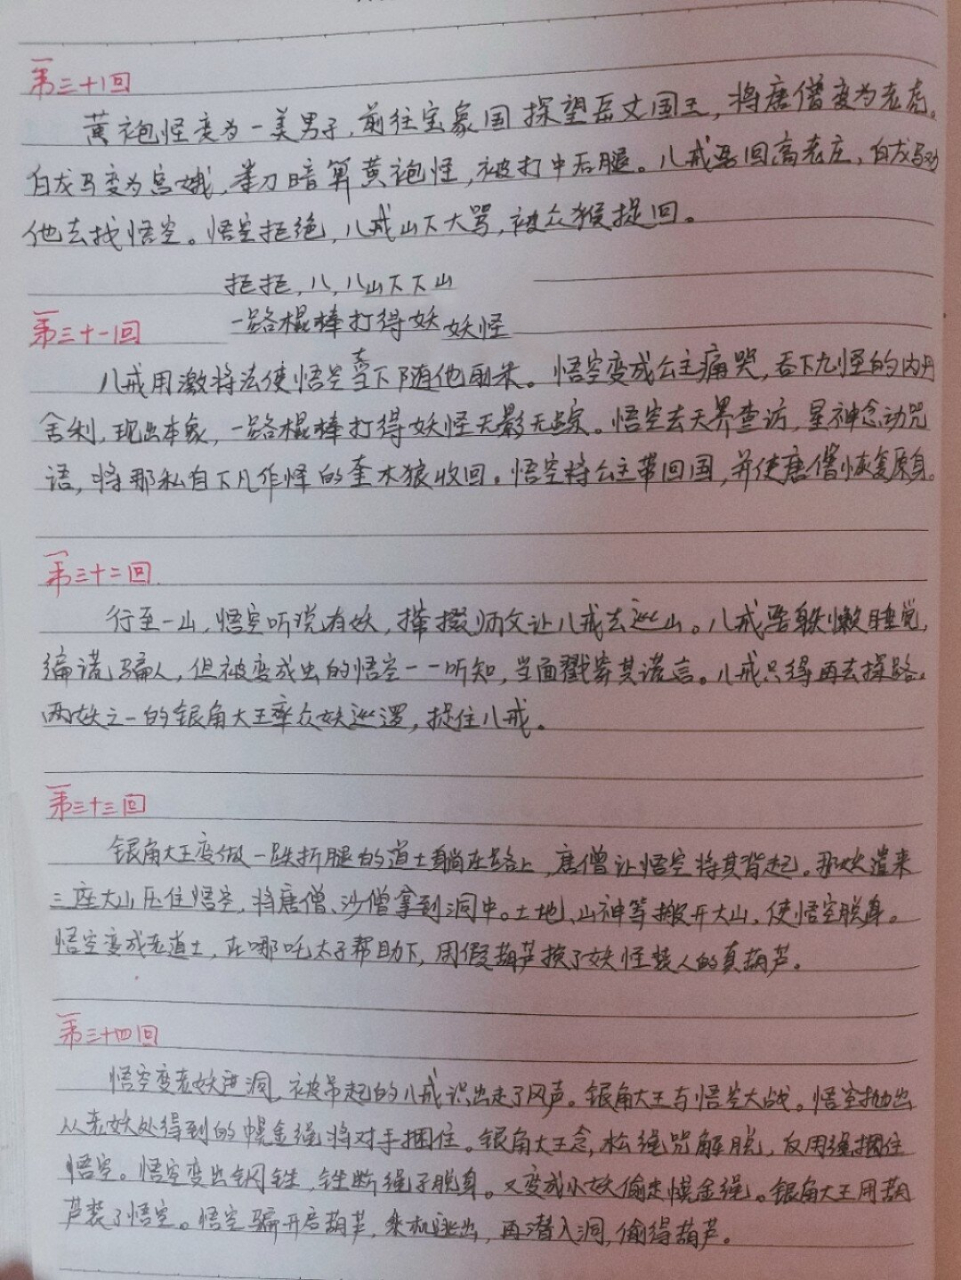 第三十回
黄袍怪变为一美男子,前往宝象国探望岳丈国王,将唐僧变为老虎。
白龙马变为宫娥,举刀暗算黄袍怪,被打中后腿。八戒要回高老庄,白龙马劝
他去找悟空。悟空拒绝,八戒山下大骂,被众猴捉回。
拒拒,八,八山下下山
第三十一回
一路棍棒打得妖 妖怪
八戒用激将法使悟空当下随他前来。悟空变成公主痛哭,吞下九怪的内丹
舍利,现出本象,一路棍棒打得妖怪无影无踪。悟空去天界查访,星神念动咒
语,将那私自下凡作怪的奎木狼收回。悟空将公主带回国,并使唐僧恢复原身。
第三十二回
行至一山,悟空听说有妖,撺掇师父让八戒去巡山。八戒要躲懒睡觉,
编谎骗人,但被变成虫的悟空一一听知,当面戳穿其谎言。八戒只得再去探路。
两妖之一的银角大王率众妖巡逻,捉住八戒。
第三十三回
银角大王变做一跌折腿的道士躺在路上,唐僧让悟空将其背起。那妖遣来
三座大山压住悟空,将唐僧、沙僧拿到洞中。土地、山神等搬开大山,使悟空脱身。
悟空变成老道士,在哪吒太子帮助下,用假葫芦换了妖怪装人的真葫芦。
第三十四回
悟空变老妖进洞,被吊起的八戒识出走了风声。银角大王与悟空大战。悟空抛出
从老妖处得到的幌金绳将对手捆住。银角大王念,松绳咒解脱,反用绳捆住
悟空。悟空变出钢锉,锉断绳子脱身。又变成小妖偷走幌金绳。银角大王用葫
芦装了悟空。悟空骗开启葫芦,乘机逃出,再潜入洞,偷得葫芦。